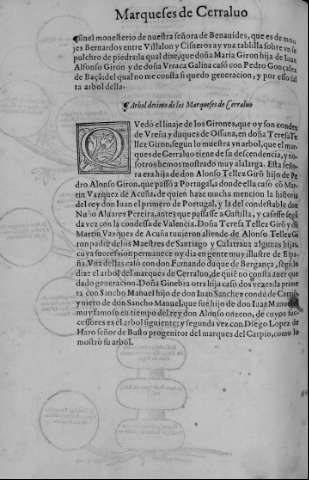 Marqueses de Cerraluo
¶ En el monesterio de nuestra señora de Benauides, que es de mon
jes Bernardos entre Villalon y Cisneros ay vna tablilla sobre vn se
pulchro de piedra la qual dize, que doña Maria Giron hija de Iuan
Alfonso Giron y de doña Vrraca Galina casó con Pedro Gonçalez
de Baçã: del qual no me consta si quedo generacion, y por esso no
ta arbol della.
¶ Arbol decimo de los Marqueses de Cerraluo
QVedó el linaje de los Girones, que oy son condes
de Vreña y duques de Ossuna, en doña Teresa Te
llez Giron, segun lo muestra vn arbol, que el mar
ques de Cerraluo tiene de su descendencia, y no
sotros hemos mostrado muy a la larga. Esta seño
ra era hija de don Alonso Tellez Girõ hijo de Pe
dro Alonso Giron, que passó a Portugal, donde ella casò cõ Mar
tin Vazquez de Acuña, de quien haze mucha mencion la historia
del rey don Iuan el primero de Portugal, y la del condestable don
Nuño Aluarez Pereira, antes que passasse a Castilla, y casasse segũ
da vez con la condessa de Valencia. Doña Teresa Tellez Girõ y dõ
Martin Vazquez de Acuña tuuieron allende de Alonso Tellez Gi
ron padre de los Maestres de Santiago y Calatraua algunas hijas,
cuya succession permanece oy dia en gente muy illustre de Espa
ña. Vna dellas casò con don Fernando duque de Bergança, segun lo
dize el arbol del marques de Cerraluo, de quiẽ no consta auer que
dado generacion. Doña Ginebra otra hija casò dos vezes la prime
ra con Sancho Manuel hijo de don Iuan Sanchez conde de Carriõ
y nieto de don Sancho Manuel, que fue hijo de don Iuan Manuel
muy famoso en tiempo del rey don Alonso onzeno, de cuyos suc
cessores es el arbol siguiente: y segunda vez con Diego Lopez de
Haro señor de Busto progenitor del marques del Carpio, como lo
mostró su arbol.